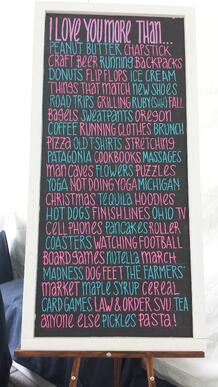 I LOVE YOU MORE THAN...
PEANUT BUTTER CHAPSTICK
CRAFT BEER RUNNING BACKPACKS
DONUTS FLIP FLOPS ICE CREAM
THINGS THAT MATCH NEW SHOES
ROAD TRIPS GRILLING RUBY (SHH) FALL
BAGELS SWEATPANTS OREGON
COFFEE RUNNING CLOTHES BRUNCH
PIZZA OLD T SHIRTS STRETCHING
PATAGONIA COOKBOOKS MASSAGES
MAN CAVES FLOWERS PUZZLES
YOGA NOT DOING YOGA MICHIGAN
CHRISTMAS TEQUILA HOODIES
HOT DOGS FINISH LINES OHIO TV
CELL PHONES PANCAKES ROLLER
COASTERS WATCHING FOOTBALL
BOARD GAMES NUTELLA MARCH
MADNESS DOG FEET THE FARMERS'
MARKET MAPLE SYRUP CEREAL
CARD GAMES LAW & ORDER SVU TEA
ANYONE ELSE PICKLES PASTA!